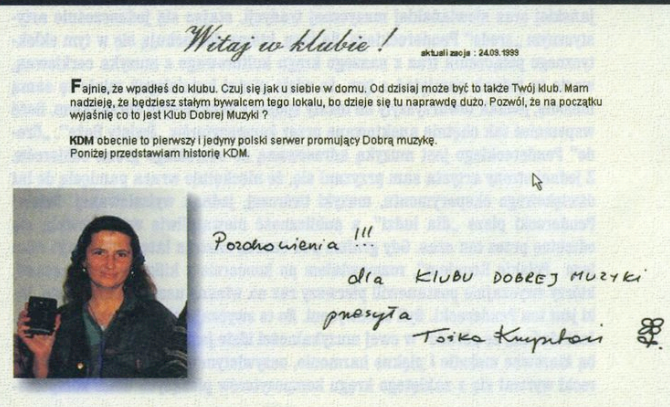 Witaj w klubie!
aktualizacja : 24.09.1999
Fajnie, że wpadłeś do klubu. Czuj się jak u siebie w domu. Od dzisiaj może być to także Twój klub. Mam
nadzieję, że będziesz stałym bywalcem tego lokalu, bo dzieje się tu naprawdę dużo. Pozwól, że na początku
wyjaśnię co to jest Klub Dobrej Muzyki ?
KDM obecnie to pierwszy i jedyny polski serwer promujący Dobrą muzykę.
Poniżej przedstawiam historię KDM.
Pozdrowienia !!!
dla KLUBU DOBREJ MUZYKI
przesyła